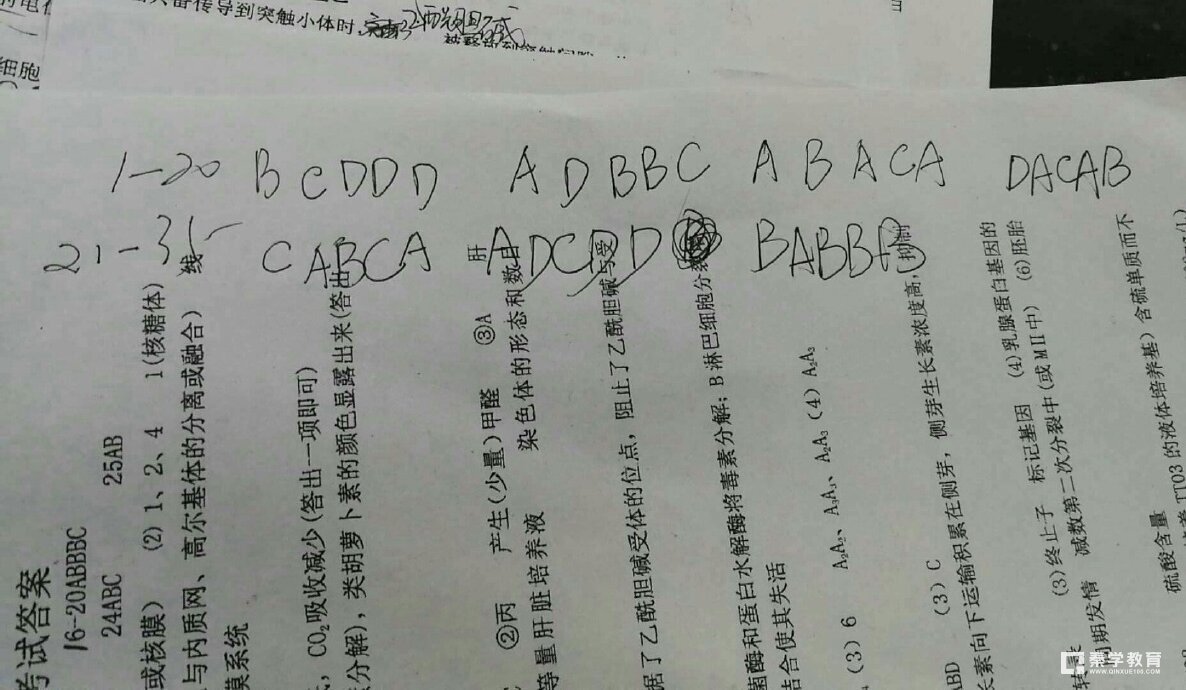 奋传导到突触小体时,
乙酰胆碱
细胞
1-20 BCDDD ADBBC ABACA DACAB
21-35 CABCA ADCDD BABBB
考试答案
16-20ABBBC
24ABC 25AB
或核膜) (2)1、2、4 1(核糖体) 线
与内质网、高尔基体的分离或融合)
膜系统
,CO₂吸收减少(答出一项即可)
分解),类胡萝卜素的颜色显露出来(答出
②丙 产生(少量)甲醛 ③A 肝
等量肝脏培养液 染色体的形态和数目
据了乙酰胆碱受体的位点,阻止了乙酰胆碱与受
菌酶和蛋白水解酶将毒素分解;B淋巴细胞分裂
结合使其失活
(3)6 A₂A₂、A₃A₃、A₂A₃(4)A₂A₃
ABD (3)C
长素向下运输积累在侧芽,侧芽生长素浓度高,抑制
(3)终止子 标记基因 (4)乳腺蛋白基因的
同期发情 减数第二次分裂中(或MⅡ中) (6)胚胎
硫酸含量
TT03的液体培养基)含硫单质而不
秦学教育
WWW.QINXUE100.COM